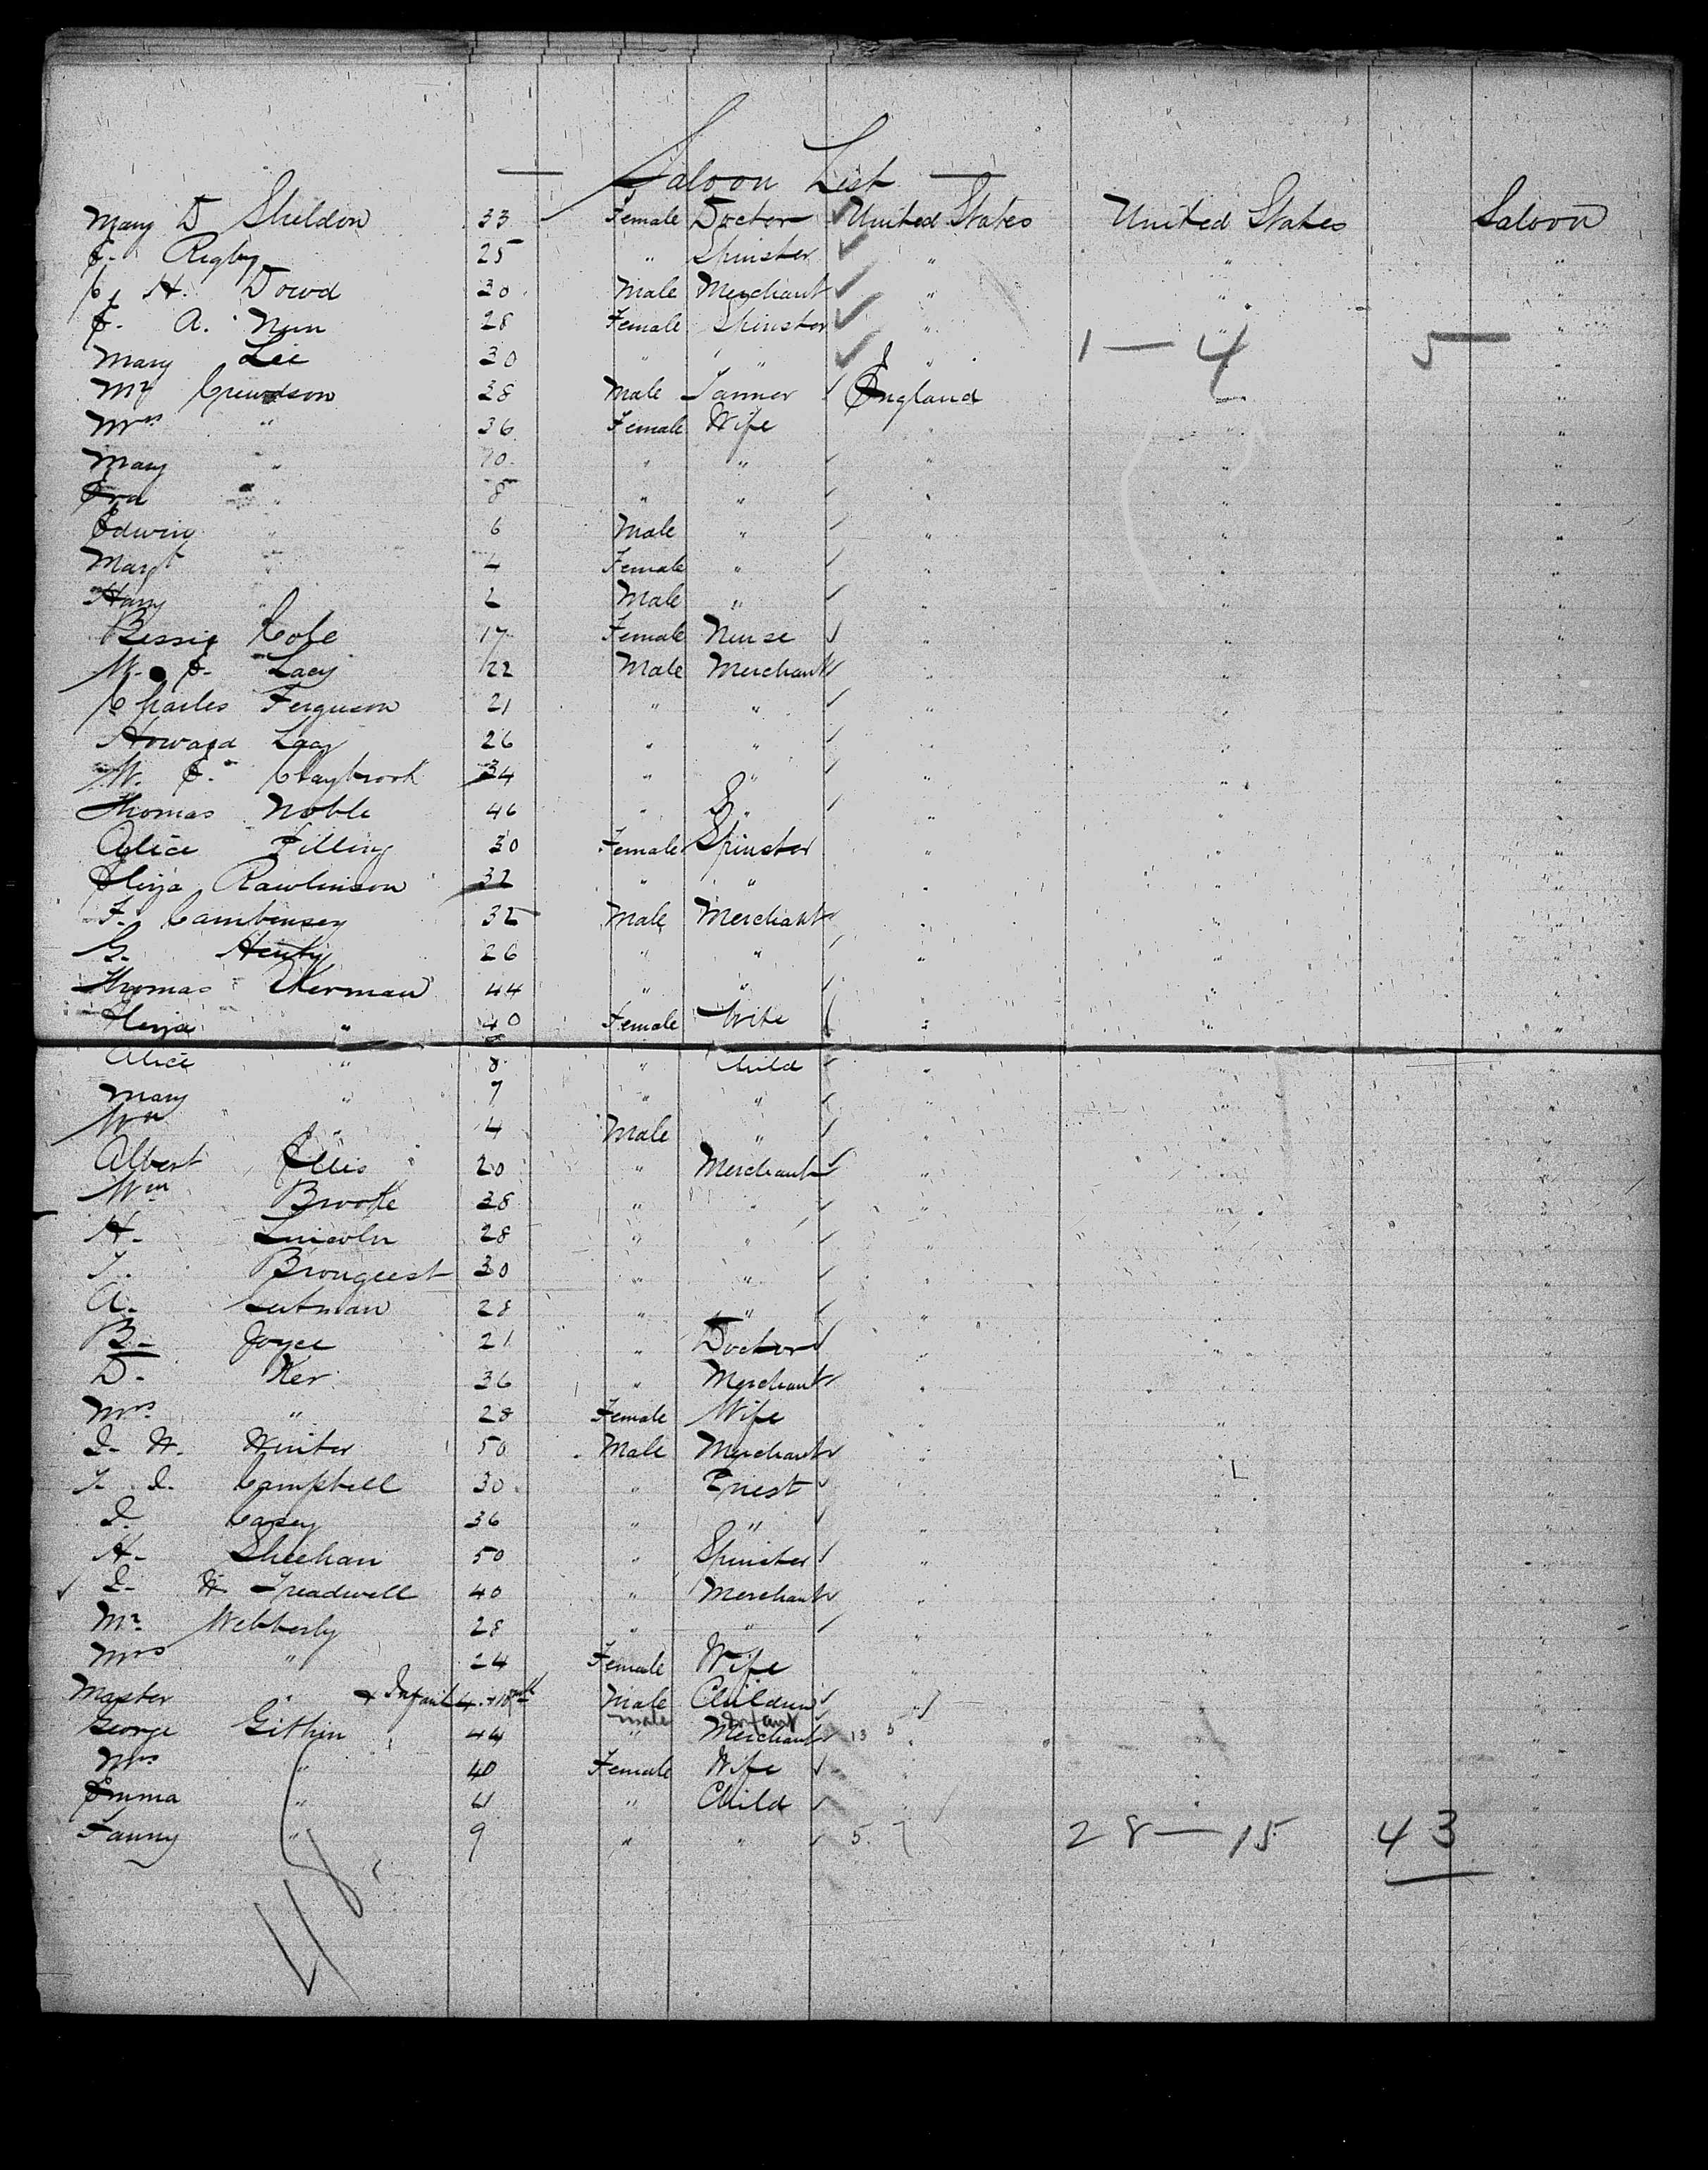 — Saloon List —
Mary D Sheldon 33 Female Doctor United States United States Saloon
E. Rigby 25 " Spinster " " "
C. H. Dowd 30 Male Merchant " " "
E. A. Nunn 28 Female Spinster " " "
Mary Lee 30 " " " 1 — 4 5 "
Mr Crewdson 28 Male Tanner England " "
Mrs " 36 Female Wife " " "
Mary " 10 " " " " "
" 8 " " " " "
Edwin " 6 Male " " " "
Margt " 4 Female " " " "
Harry " 2 Male " " " "
Bessie Cole 17 Female Nurse " " "
W. E. Lacy 22 Male Merchant " " "
Charles Ferguson 21 " " " " "
Howard Lacy 26 " " " " "
W. E. Claybrook 34 " " " " "
Thomas Noble 46 " " " " "
Alice Pilling 30 Female Spinster " " "
Eliza Rawlinson 32 " " " " "
F. 32 Male Merchant " " "
G. Henty 26 " " " " "
Thomas Akerman 44 " " " " "
Eliza " 40 Female Wife " " "
Alice " 8 " Child " " "
Mary " 7 " " " " "
Wm " 4 Male " " " "
Albert Ellis 20 " Merchant " " "
Wm Brooke 38 " " " " "
H. Lincoln 28 " " " " "
T. Brougeest 30 " " " " "
A. Lutman 28 " " " " "
B. Joyce 21 " Doctor " " "
D. Ker 36 " Merchant " " "
Mrs " 28 Female Wife " " "
J. W. Winter 50 Male Merchant " " "
T. J. Campbell 30 " Priest " " "
J. Casey 36 " " " " "
H. Sheehan 50 " Spinster " " "
J. H Treadwell 40 " Merchant " " "
Mr Webberly 28 " " " " "
Mrs " 24 Female Wife " " "
Master " & Infant 4 + 10 mth Male Children " " "
male Infant
George Githin 44 " Merchant 13 " " "
Mrs " 40 Female Wife " " "
Emma " 11 " Child " " "
Fanny " 9 " " 5 28 — 15 43 "
48